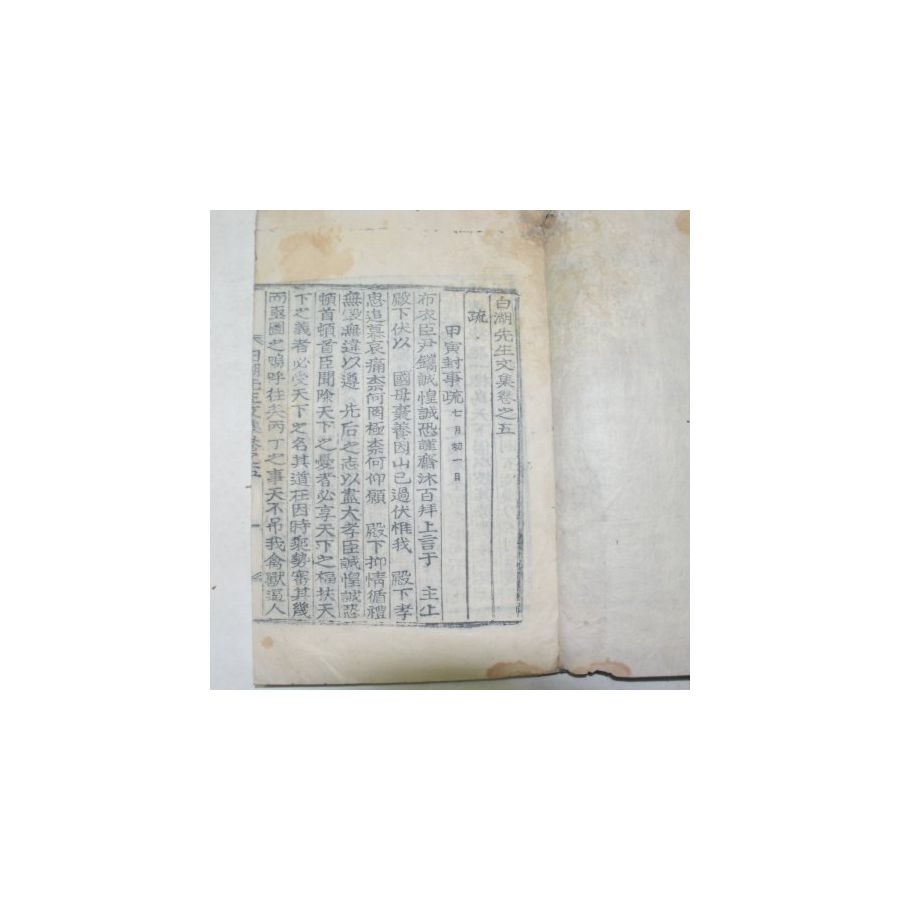 白湖先生文集卷之五
疏
甲寅封事疏 七月初一日
布衣臣尹鑴誠惶誠恐謹齋沐百拜上言于 主上
殿下伏以 國母棄養因山已過伏惟我 殿下孝
思追慕哀痛柰何罔極柰何仰願 殿下抑情循禮
無毀無違以遵 先后之志以盡大孝臣誠惶誠恐
頓首頓首臣聞除天下之憂者必享天下之福扶天
下之義者必受天下之名其道在因時乘勢審其幾
而亟圖之嗚呼往矣丙丁之事天不吊我禽獸逼人
白湖先生文集卷之五